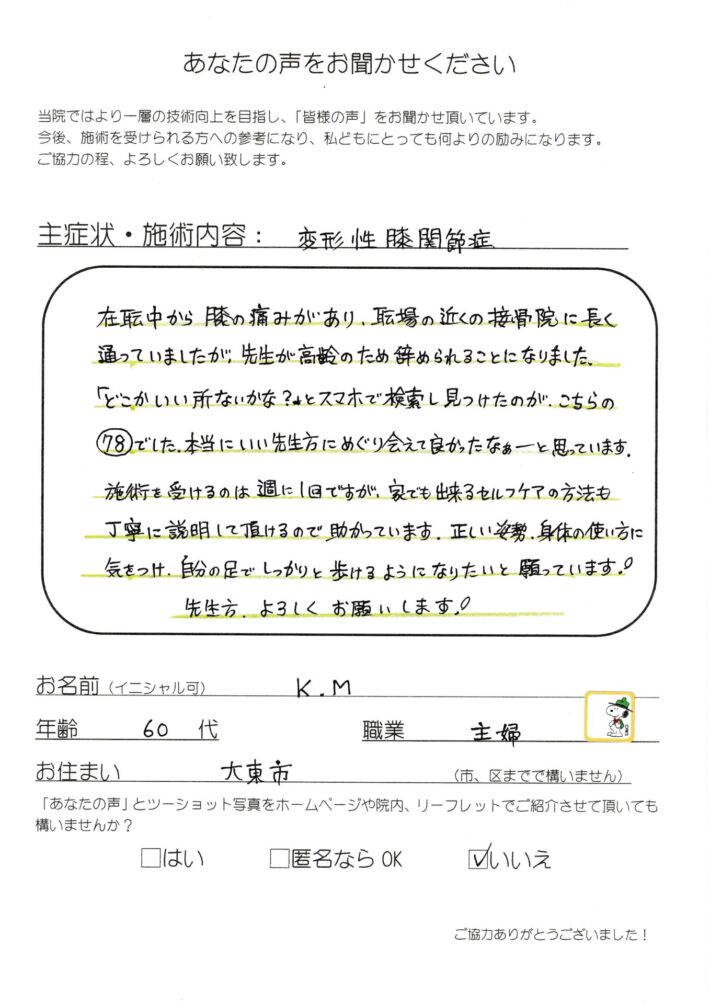 あなたの声をお聞かせください
当院ではより一層の技術向上を目指し、「皆様の声」をお聞かせ頂いています。
今後、施術を受けられる方への参考になり、私どもにとっても何よりの励みになります。
ご協力の程、よろしくお願い致します。
主症状・施術内容： 変形性膝関節症
在転中から 膝の痛みがあり、転場の近くの接骨院に長く
通っていましたが、先生が高齢のため辞められることになりました。
「どこかいい所ないかな？」とスマホで検索し見つけたのが、こちらの
78でした。本当にいい先生方にめぐり会えて良かったなぁーと思っています。
施術を受けるのは週に1回ですが、家でも出来るセルフケアの方法も
丁寧に説明して頂けるので助かっています。正しい姿勢、身体の使い方に
気をつけ、自分の足でしっかりと歩けるようになりたいと願っています！
先生方、よろしくお願いします！
お名前（イニシャル可） K.M
年齢 60 代 職業 主婦
お住まい 大東市 （市、区までで構いません）
「あなたの声」とツーショット写真をホームページや院内、リーフレットでご紹介させて頂いても
構いませんか？
□はい □匿名ならOK ☑いいえ
ご協力ありがとうございました！